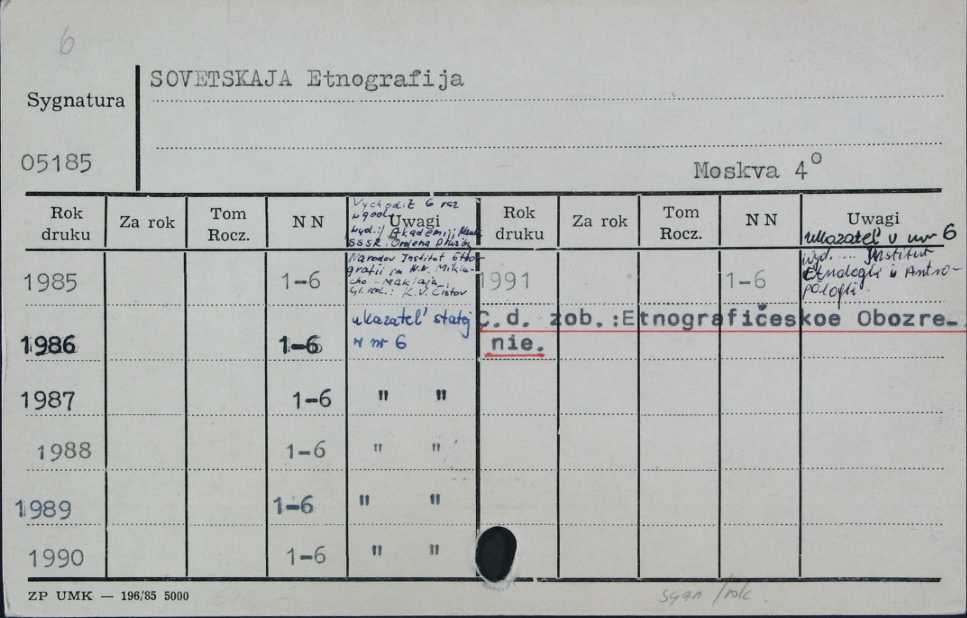 6
SOVETSKAJA Etnografija
Sygnatura
05185
Moskva 4°
Rok druku Za rok Tom Rocz. N N Uwagi Rok druku Za rok Tom Rocz. N N Uwagi
Vychodit 6 raz
v god
wyd.: Akademija Nauk
SSSR. Ordena Družby
Narodov Institut Etno-
grafii im N.N. Miklu-
cho-Maklaja
K.V. Čistov
1985 1-6
1991 1-6
ukazatel' v nr 6
wyd. ... Institut
Etnologii i Antro-
pologii
1986 1-6 ukazatel' statej
w nr 6
C.d. zob.:Etnografičeskoe Obozre-
nie.
1987 1-6 " "
1988 1-6 " "
1989 1-6 " "
1990 1-6 " "
ZP UMK — 196/85 5000
sygn /rok.